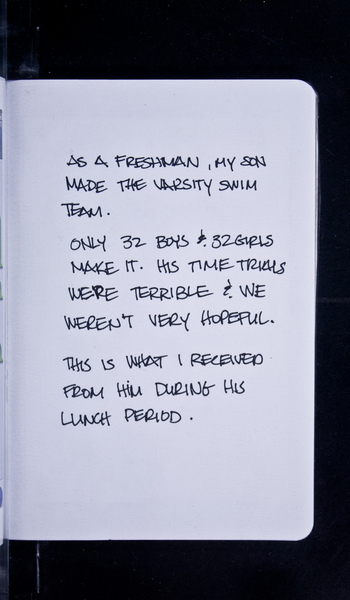 AS A FRESHMAN, MY SON
MADE THE VARSITY SWIM
TEAM.
ONLY 32 BOYS & 32 GIRLS
MAKE IT. HIS TIME TRIALS
WERE TERRIBLE & WE
WEREN'T VERY HOPEFUL.
THIS IS WHAT I RECEIVED
FROM HIM DURING HIS
LUNCH PERIOD.